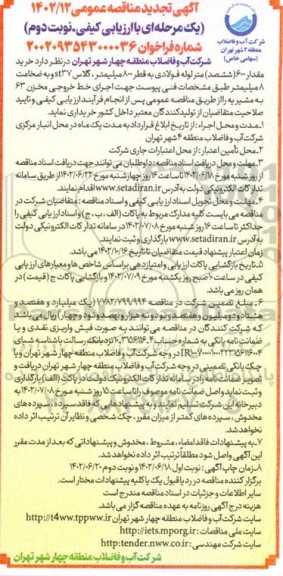 آگهی تجدید مناقصه عمومی ۱۴۰۲/۱۲
(یک مرحله‌ای با ارزیابی کیفی، نوبت دوم)
شماره فراخوان ۲۰۰۲۰۹۳۵۴۳۰۰۰۰۳۶
شرکت آب و فاضلاب
منطقه ۴ شهر تهران
(سهامی خاص)
شرکت آب و فاضلاب منطقه چهار شهر تهران در نظر دارد خرید
مقدار ۶۰۰ (ششصد) متر لوله فولادی به قطر ۸۰۰ میلیمتر، کلاس ۶۳۷ و به ضخامت
۸ میلیمتر طبق مشخصات فنی پیوست جهت اجرای خط خروجی مخزن ۶۳
به مشیریه را از طریق مناقصه عمومی پس از انجام فرآیند ارزیابی کیفی و تایید
صلاحیت متقاضیان از تولیدکنندگان معتبر داخل کشور خریداری نماید.
۱ـ مدت و محل اجراء: از تاریخ ابلاغ قرارداد به مدت یک ماه در محل انبار مرکزی
شرکت آب و فاضلاب منطقه ۴ شهر تهران
۲ـ محل تأمین اعتبار: از محل اعتبارات جاری شرکت
۳ـ مهلت و محل دریافت اسناد مناقصه: داوطلبان می‌توانند جهت دریافت اسناد مناقصه
از روز شنبه مورخ ۱۴۰۲/۰۶/۱۸ تا ساعت ۱۶ روز چهارشنبه مورخ ۱۴۰۲/۰۶/۲۲ از طریق سامانه
تدارکات الکترونیکی دولت به آدرس www.setadiran.ir اقدام نمایند.
۴ـ مهلت و محل تحویل اسناد ارزیابی کیفی و اسناد مناقصه: متقاضیان شرکت در
مناقصه می‌بایست کلیه مدارک مربوط به پاکات (الف، ب، ج) و اسناد ارزیابی کیفی را
حداکثر تا ساعت ۱۶ روز شنبه مورخ ۱۴۰۲/۰۷/۰۸ در سامانه تدارکات الکترونیکی دولت
به آدرس www.setadiran.ir بارگذاری و ثبت نمایند.
زمان اعتبار پیشنهاد قیمت متقاضیان تا تاریخ ۱۴۰۲/۱۰/۱۶ می‌باشد.
۵ـ تاریخ بازگشایی پاکات ارزیابی و امتیازدهی بر اساس شاخص‌ها و معیارهای ارزیابی
کیفی در ساعت ۱۰ صبح روز یکشنبه مورخ ۱۴۰۲/۰۷/۰۹ و بازگشایی پاکات ج (قیمت) در
همان روز می‌باشد.
۶ـ مبلغ تضمین شرکت در مناقصه ۱/۷۸۲/۷۹۹/۹۹۴ (یک میلیارد و هفتصد و
هشتاد و دو میلیون و هفتصد و نود و نه هزار و نهصد و نود و چهار) ریال می‌باشد
که شرکت کنندگان در مناقصه می‌توانند به صورت فیش واریزی نقدی و یا
ضمانت نامه بانکی به شماره حساب نزد بانک رسالت با شناسه شبای
در وجه شرکت آب و فاضلاب منطقه چهار شهر تهران و یا
چک بانکی تضمینی در وجه شرکت آب و فاضلاب منطقه چهار شهر تهران دریافت و
تصویر ضمانت نامه را در سامانه تدارکات الکترونیک دولت در پاکت (الف) بارگذاری
و ثبت نماید و اصل ضمانت نامه موصوف را تا ساعت ۱۵ روز شنبه مورخ ۱۴۰۲/۰۷/۰۸ به
دبیرخانه این شرکت تسلیم نماید و به پیشنهادهایی که فاقد سپرده، سپرده‌های
مخدوش، سپرده‌های کمتر از میزان مقرر، چک شخصی و نظایر آن ترتیب اثر داده
نخواهد شد.
۷ـ به پیشنهادات فاقد امضاء، مشروط، مخدوش و پیشنهاداتی که بعد از مدت مقرر
این آگهی واصل شود مطلقا ترتیب اثر داده نخواهد شد.
۸ـ زمان چاپ آگهی: نوبت اول ۱۴۰۲/۰۶/۱۸ و نوبت دوم ۱۴۰۲/۰۶/۲۰
برگزار کننده مناقصه در رد یا قبول یک یا کلیه پیشنهادات مختار است.
سایر اطلاعات و جزئیات در اسناد مناقصه مندرج است
هزینه درج آگهی روزنامه به عهده مناقصه گزار می‌باشد.
سایت شرکت آب و فاضلاب منطقه چهار شهر تهران http://t4ww.tppww.ir
سایت ملی مناقصات: http://iets.mporg.ir
سایت شرکت مهندسی: http:tender.nww.co.ir
شرکت آب و فاضلاب منطقه چهار شهر تهران